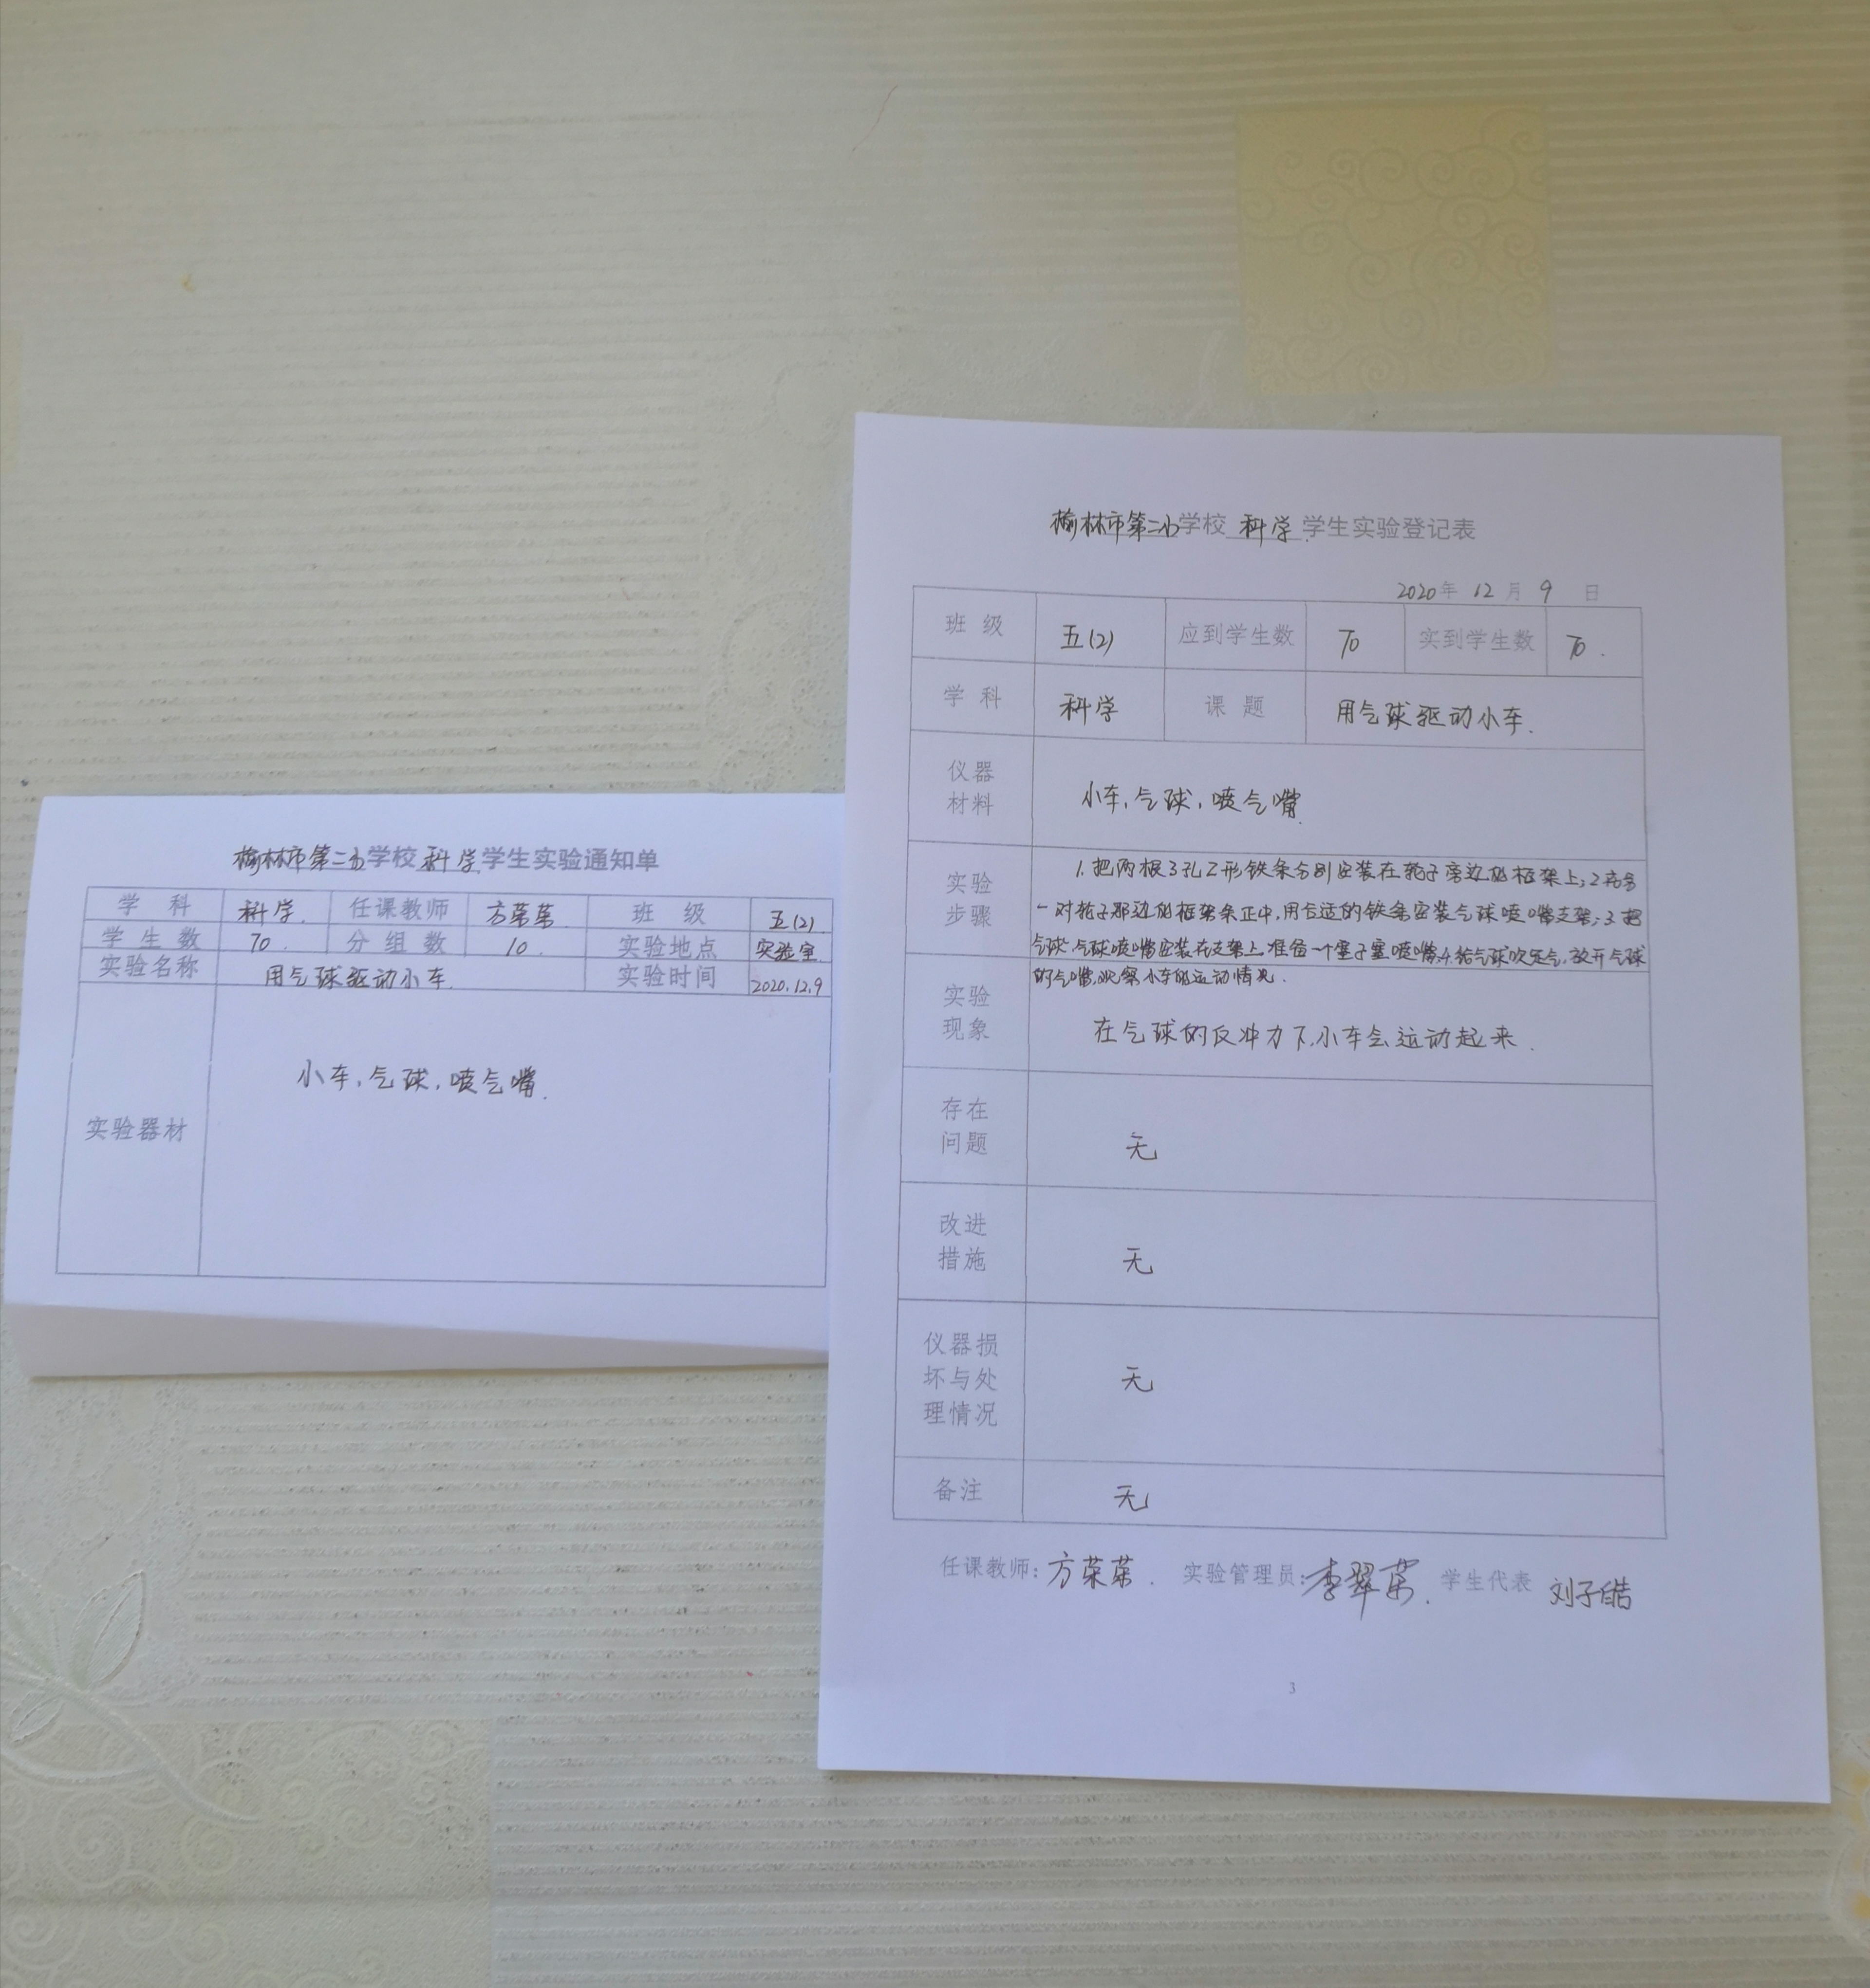 榆林市第二小学校 科学 学生实验通知单
学 科 科学. 任课教师 方荣荣 班 级 五(2)
学 生 数 70. 分 组 数 10. 实验地点 实验室
实验名称 用气球驱动小车. 实验时间 2020.12.9
实验器材 小车,气球,喷气嘴.
榆林市第二小学校 科学 学生实验登记表
2020年 12 月 9 日
班 级 五(2) 应到学生数 70 实到学生数 70.
学 科 科学 课 题 用气球驱动小车.
仪器材料 小车,气球,喷气嘴.
实验步骤 1.把两根3孔Z形铁条分别安装在轮子旁边的框架上;2.在另
一对轮子那边的框架条正中,用合适的铁条安装气球喷嘴支架;3.把
气球.气球喷嘴安装在支架上,准备一个塞子塞喷嘴.4.给气球吹足气,放开气球
的气嘴,观察小车的运动情况.
实验现象 在气球的反冲力下,小车会运动起来.
存在问题 无
改进措施 无
仪器损坏与处理情况 无
备注 无
任课教师:方荣荣. 实验管理员:李翠荣. 学生代表 刘子皓
3